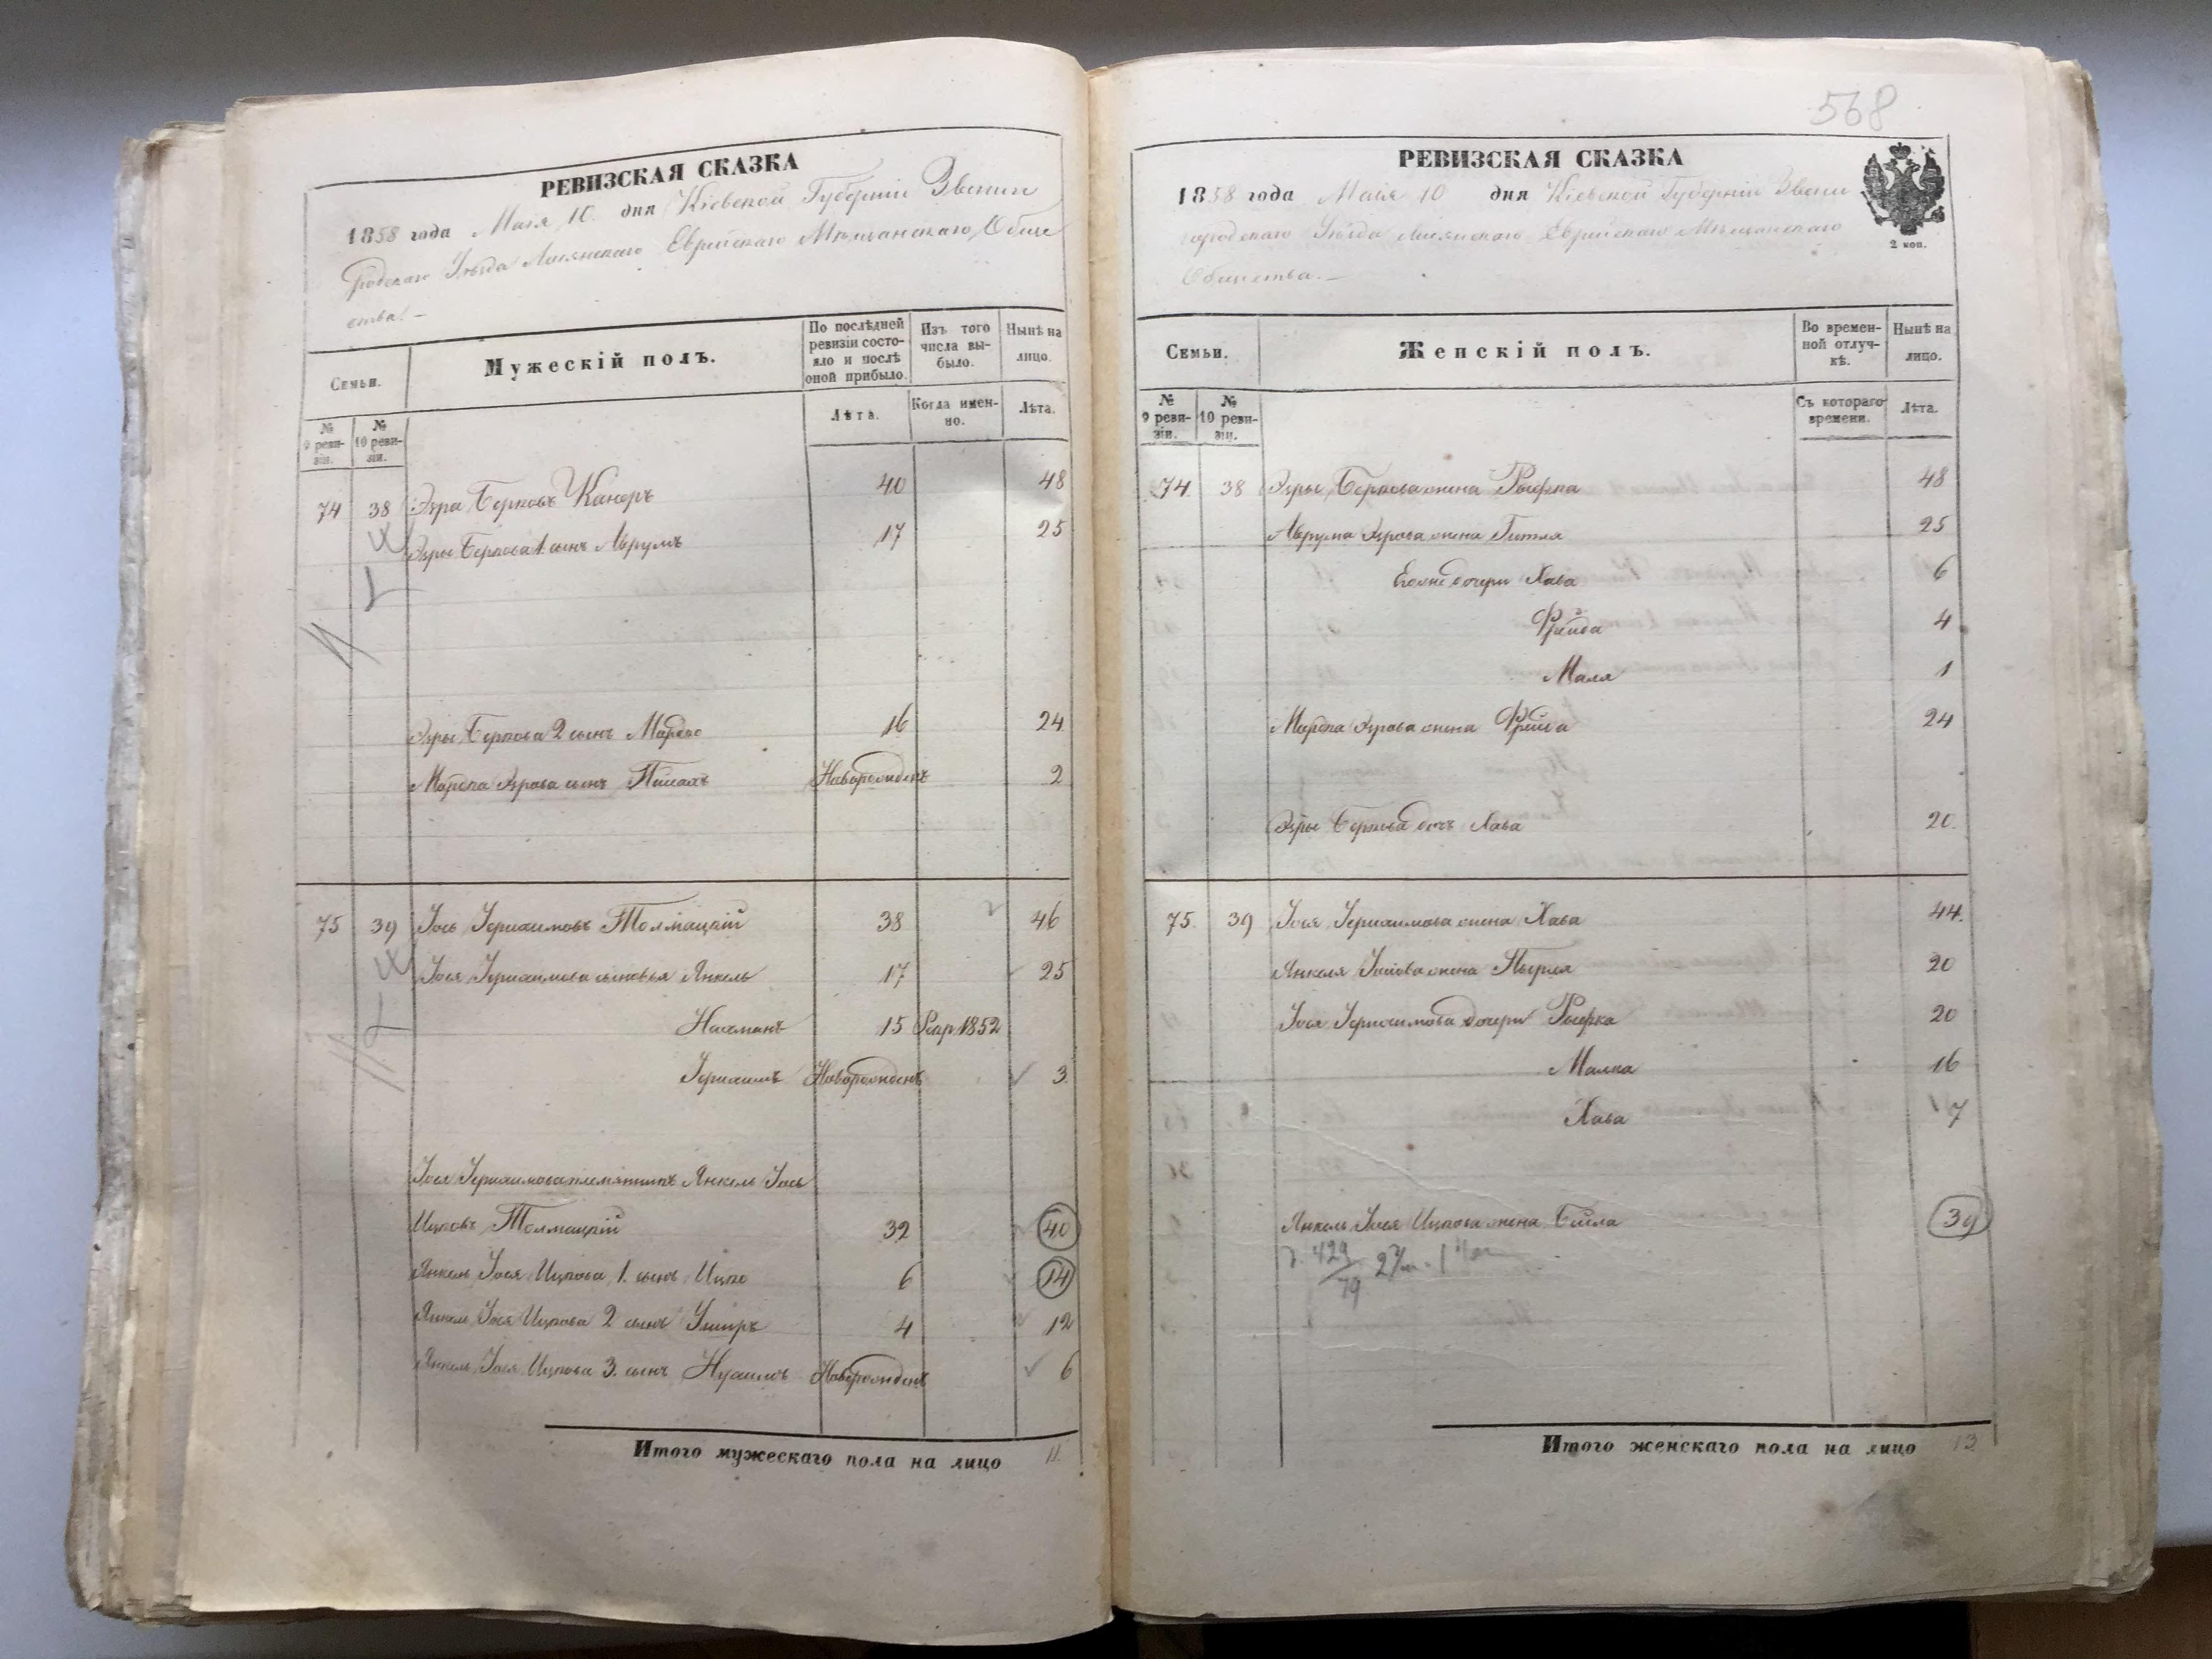 РЕВИЗСКАЯ СКАЗКА
1858 года Маія 10 дня Кіевской Губерніи Звени
городскаго Уѣзда Лисянскаго Еврейскаго Мѣщанскаго Обще
ства.—
Семьи.
Мужескій полъ.
По послѣдней ревизіи состояло и послѣ оной прибыло.
Изъ того числа выбыло.
Нынѣ на лицо.
№ 9 ревизіи.
№ 10 ревизіи.
Лѣта.
Когда именно.
Лѣта.
74 38 Эзра Берковъ Канеръ 40 48
Эзры Беркова 1 сынъ Аврумъ 17 25
Эзры Беркова 2 сынъ Мардко 16 24
Мардка Эзрова сынъ Пейсахъ Новорожденъ 2
75 39 Іось Іерихимовъ Толмацкій 38 46
Іося Іерихимова сыновья Янкель 17 25
Нахманъ 15 Рекр. 1852
Іерихимъ Новорожденъ 3
Іося Іерихимова племянникъ Янкель Іось
Ицковъ Толмацкій 32 40
Янкель Іося Ицкова 1. сынъ Ицко 6 14
Янкель Іося Ицкова 2 сынъ 4 12
Янкель Іося Ицкова 3. сынъ Новорожденъ 6
Итого мужескаго пола на лицо 11.
568
РЕВИЗСКАЯ СКАЗКА
1858 года Маія 10 дня Кіевской Губерніи Звени
городскаго Уѣзда Лисянскаго Еврейскаго Мѣщанскаго
Общества.—
2 коп.
Семьи.
Женскій полъ.
Во временной отлучкѣ.
Нынѣ на лицо.
№ 9 ревизіи.
№ 10 ревизіи.
Съ котораго времени.
Лѣта.
74 38 Эзры Беркова жена Рывка 48
Аврума Эзрова жена Гитля 25
Его же дочери Хава 6
Фрейда 4
Маля 1
Мардка Эзрова жена Фрейда 24
Эзры Беркова дочь Хава 20.
75. 39 Іося Іерихимова жена Хава 44.
Янкеля Іосіова жена Пырля 20
Іося Іерихимова дочери Рывка 20
Малка 16
Хава 7
Янкель Іося Ицкова жена Бейла 39
429
79
Итого женскаго пола на лицо 13